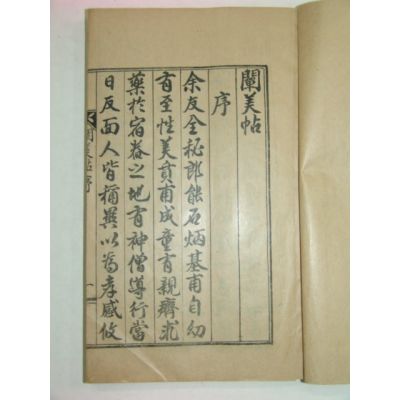 闡美帖
序
余友全秘郎能石炳基甫自幼
有至性美質甫成童有親癠求
藥於宿眷之地有神僧導行當
日反面人皆稱異以為孝感攸
闡美帖序
一